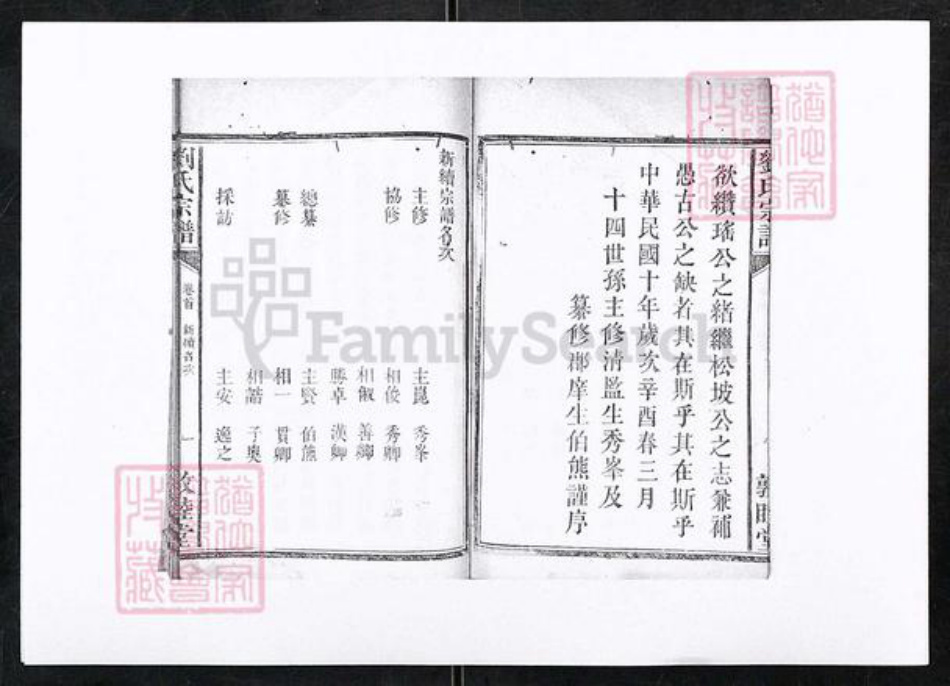 劉氏宗譜
欲纘瑤公之緒繼松坡公之志兼補
愚古公之缺者其在斯乎其在斯乎
中華民國十年歲次辛酉春三月
十四世孫主修清監生秀峯及
纂修郡庠生伯熊謹序
敦睦堂
新續宗譜名次
主修 主崑 秀峯
協修 相俊 秀卿
相俶 善卿
勝卓 漢卿
總纂 主賢 伯熊
纂修 相一 貫卿
相諧 子奥
採訪 主安 逸之
劉氏宗譜
卷首 新續名次 一
敦睦堂
FamilySearch